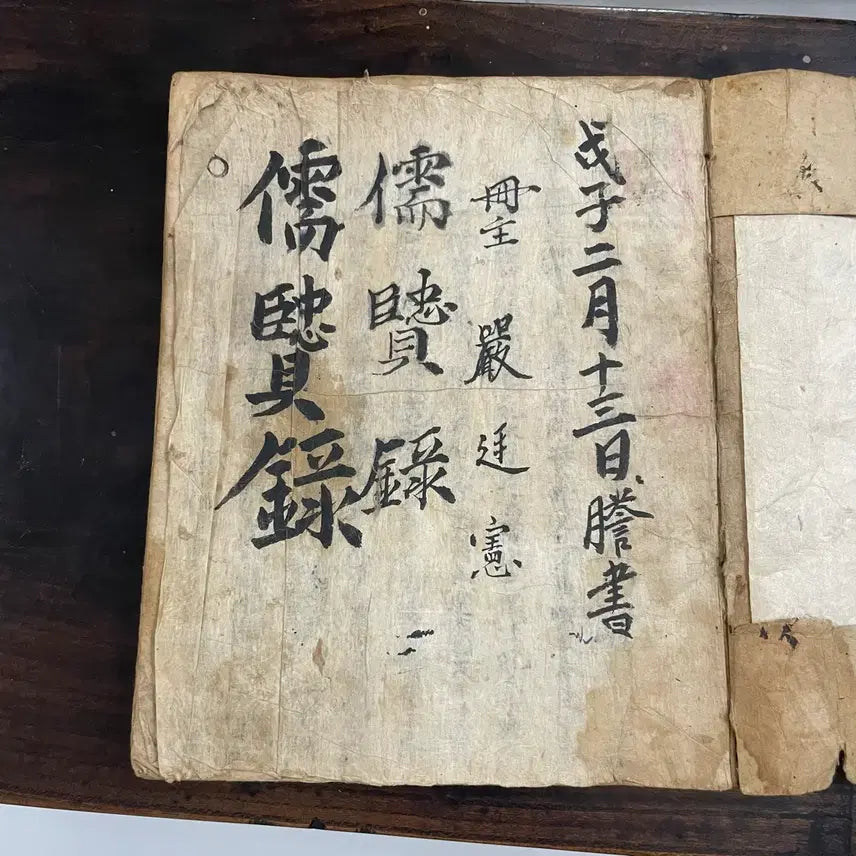 戊子二月十三日謄書
冊主 嚴廷憲
儒贒錄
儒贒錄